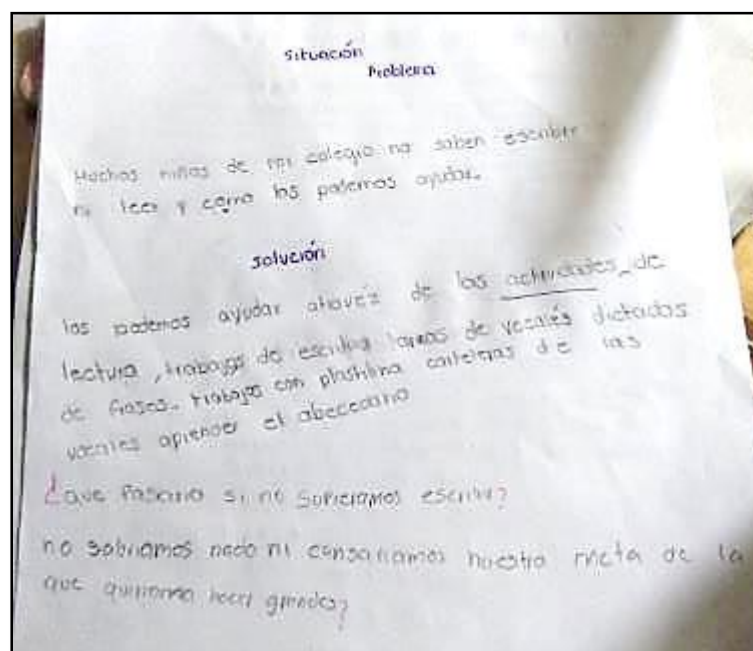 Situación
Problema
Muchos niños de mi colegio no saben escribir
ni leer y como los podemos ayudar.
solución
los podemos ayudar atravéz de las actividades de
lectura, trabajos de escritura tareas de vocales dictados
de frases. trabajos con plastilina carteleras de las
vocales aprender el abecedario
¿que pasaria si no supieramos escribir?
no sabriamos nada ni nuestra meta de la
que grandes?